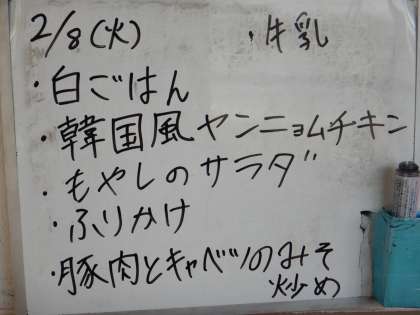 2/8(火)
・牛乳
・白ごはん
・韓国風ヤンニョムチキン
・もやしのサラダ
・ふりかけ
・豚肉とキャベツのみそ
炒め